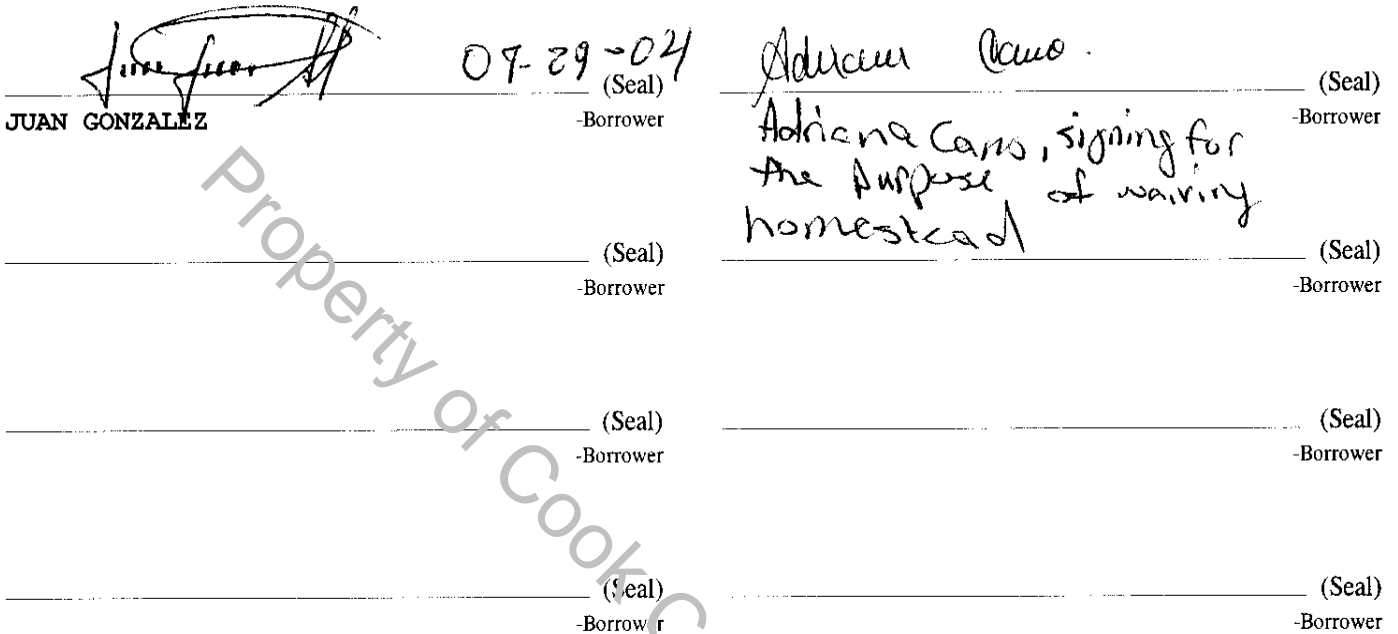 07-29-04 (Seal)
JUAN GONZALEZ -Borrower
Adriana Cano. (Seal)
-Borrower
Adriana Cano, signing for
the purpose of waiving
homestead
(Seal) (Seal)
-Borrower -Borrower
(Seal) (Seal)
-Borrower -Borrower
(Seal) (Seal)
-Borrower -Borrower
Property of Cook C